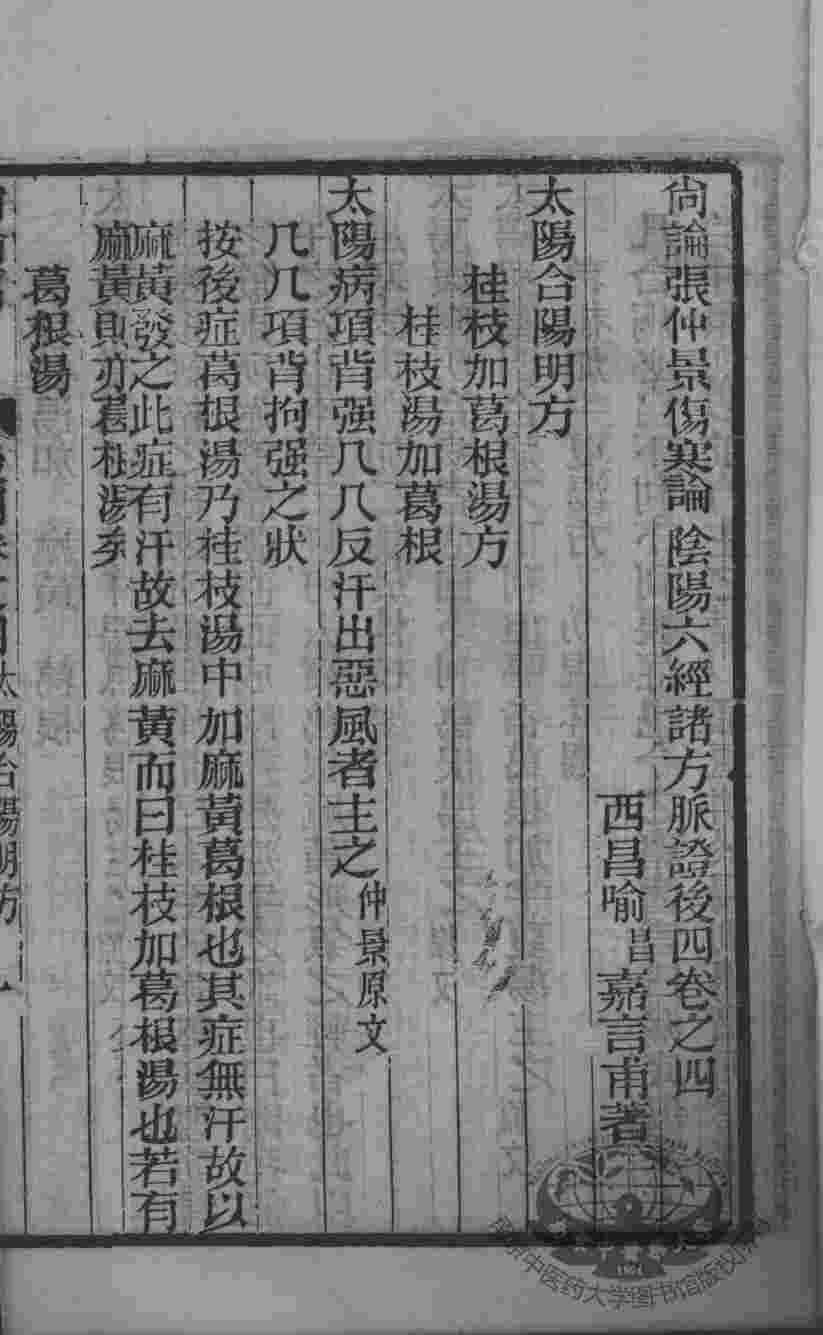 尙論張仲景傷寒論陰陽六經諸方脈證後四卷之四
西昌喻昌嘉言甫著
太陽合陽明方
桂枝加葛根湯方
桂枝湯加葛根
太陽病項背强几几反汗出惡風者主之仲景原文
几几項背拘强之狀
按後症葛根湯乃桂枝湯中加麻黃葛根也其症無汗故以
麻黃發之此症有汗故去麻黃而曰桂枝加葛根湯也若有
麻黃則亦葛根湯矣
葛根湯
太陽合陽明方
中医药大学图书馆版权所有